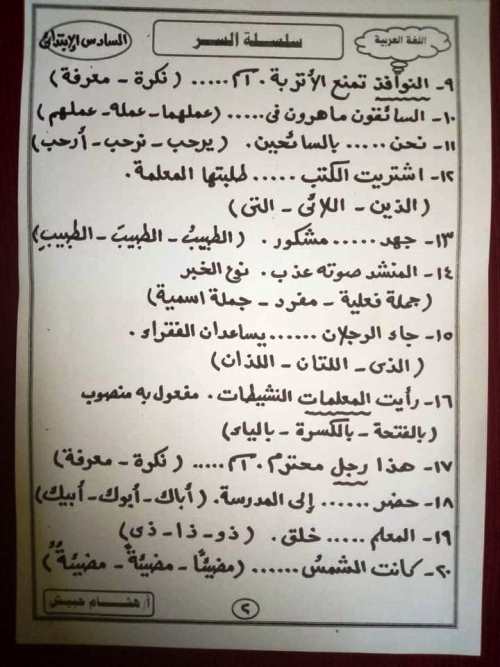 اللغة العربية
سلسلة السر
السادس الإبتدائى
٩- النوافذ تمنع الأتربة. ..... ( نكرة - معرفة )
١٠- السائقون ماهرون فى ..... (عملهما - عمله - عملهم )
١١- نحن ..... بالسائحين. ( يرحب - نرحب - أرحب)
١٢- اشتريت الكتب ..... طلبتها المعلمة.
( الذين - اللائى - التى )
١٣- جهد ..... مشكور. ( الطبيبُ - الطبيبَ - الطبيبِ )
١٤- المنشد صوته عذب. نوع الخبر
(جملة فعلية - مفرد - جملة اسمية)
١٥- جاء الرجلان ...... يساعدان الفقراء.
( الذى - اللتان - اللذان )
١٦- رأيت المعلمات النشيطات. مفعول به منصوب
(بالفتحة - بالكسرة - بالياء)
١٧- هذا رجل محترم. ..... ( نكرة - معرفة )
١٨- حضر ...... إلى المدرسة. ( أباك - أبوك - أبيك )
١٩- المعلم ..... خلق. ( ذو - ذا - ذى )
٢٠- كانت الشمسُ ...... (مضيئًا - مضيئةً - مضيئةٌ )
٢
أ/ هشام حبيش